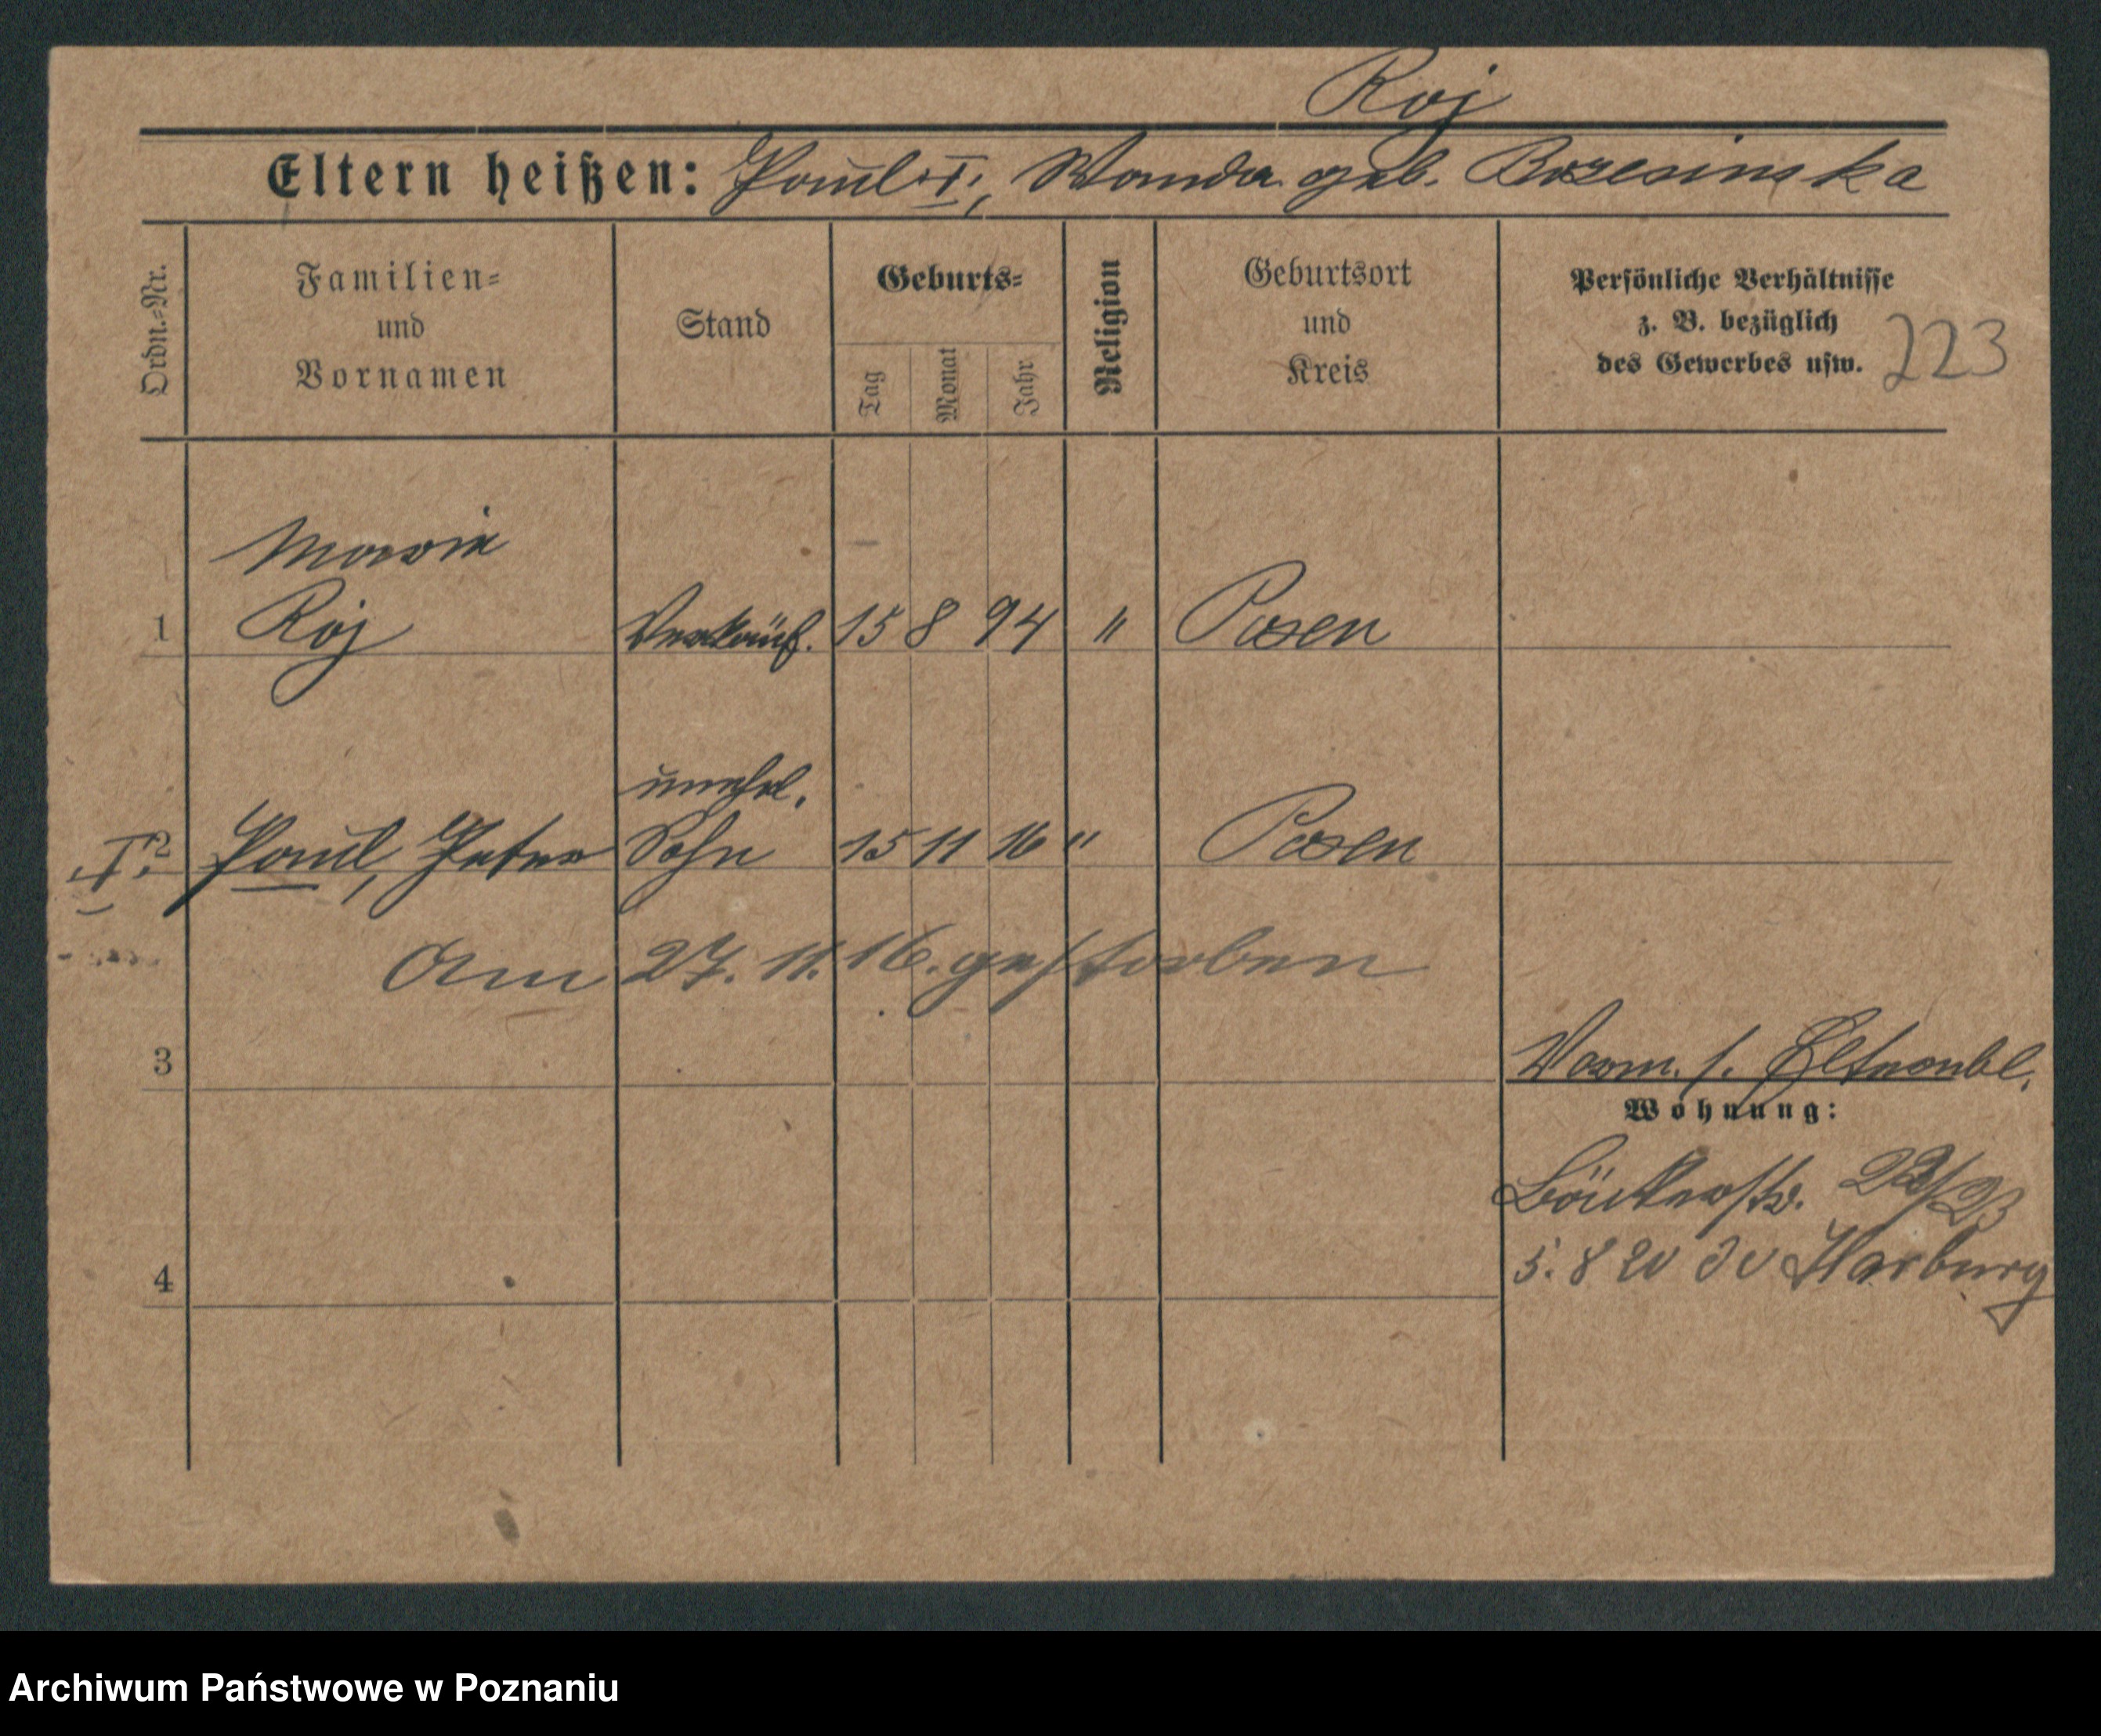 Roj
Eltern heißen: Paul †, Wanda geb. Brzesinska
Ordn.-Nr.
Familien-
und
Vornamen
Stand
Geburts-
Tag
Monat
Jahr
Religion
Geburtsort
und
Kreis
Persönliche Verhältnisse
z. B. bezüglich
des Gewerbes usw.
223
Marie
1 Roj Verkäuf. 15 8 94 " Posen
unehel.
†. 2 Paul, Peter Sohn 15 11 16 " Posen
Am 27. 11. 16. gestorben
3
Vorm. s.
Wohnung:
Bäckerstr. 22/23
5. 8 20 Harburg
4
Archiwum Państwowe w Poznaniu